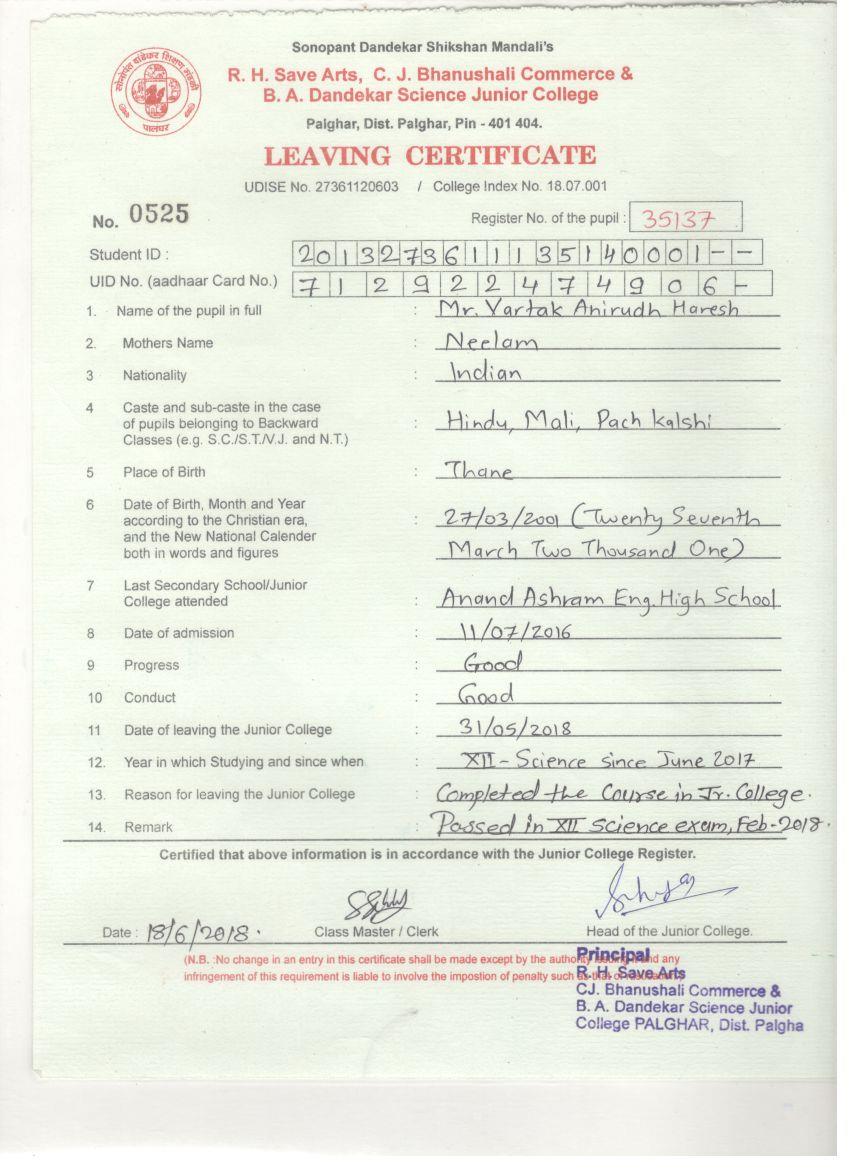 Sonopant Dandekar Shikshan Mandali's
सोनोपंत दांडेकर शिक्षण मंडळी
पालघर
R. H. Save Arts, C. J. Bhanushali Commerce &
B. A. Dandekar Science Junior College
Palghar, Dist. Palghar, Pin - 401 404.
LEAVING CERTIFICATE
UDISE No. 27361120603 / College Index No. 18.07.001
No. 0525 Register No. of the pupil : 35137
Student ID : 2013273611135140001--
UID No. (aadhaar Card No.) 712922474906-
1. Name of the pupil in full : Mr. Vartak Anirudh Haresh
2. Mothers Name : Neelam
3 Nationality : Indian
4 Caste and sub-caste in the case
of pupils belonging to Backward : Hindu, Mali, Pach Kalshi
Classes (e.g. S.C./S.T./V.J. and N.T.)
5 Place of Birth : Thane
6 Date of Birth, Month and Year
according to the Christian era, : 27/03/2001 (Twenty Seventh
and the New National Calender
both in words and figures March Two Thousand One)
7 Last Secondary School/Junior
College attended : Anand Ashram Eng. High School
8 Date of admission : 11/07/2016
9 Progress : Good
10 Conduct : Good
11 Date of leaving the Junior College : 31/05/2018
12. Year in which Studying and since when : XII - Science since June 2017
13. Reason for leaving the Junior College : Completed the Course in Jr. College.
14. Remark : Passed in XII Science exam, Feb-2018.
Certified that above information is in accordance with the Junior College Register.
Date : 18/6/2018. Class Master / Clerk Head of the Junior College.
(N.B. :No change in an entry in this certificate shall be made except by the authority issuing it and any
infringement of this requirement is liable to involve the impostion of penalty such as that of
Principal
R. H. Save Arts
CJ. Bhanushali Commerce &
B. A. Dandekar Science Junior
College PALGHAR, Dist. Palgha